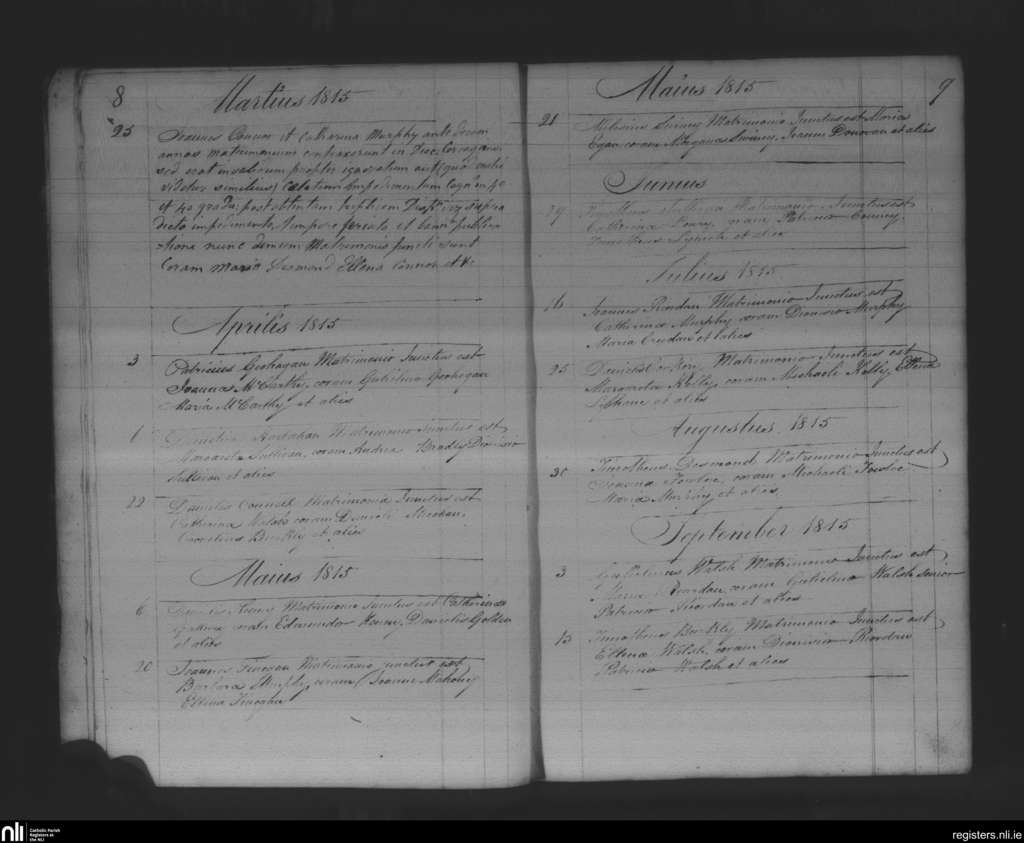 8
Martius 1815
25
Joannes Connor et Catharina Murphy ante decem
annos matrimonium contraxerunt in Dioc. Corcagiensi
sed erat invalidum propter ignoratum aut (quod
in 4o
et 4o gradu: post obtentum duplicem supra
dicto impedimento, tempore feriato et
nunc demum Matrimonio juncti sunt
Coram Maria Desmond Ellena Connor et
Aprilis 1815
3
Patricius Geohagan Matrimonio Junctus est
Joanna McCarthy, coram Gulielmo Geohegan
Maria McCarthy et aliis
6
Matrimonio Junctus est
Margarita Sullivan, coram Andrea Bradly Dionisio
Sullivan et aliis
22
Daniels Connell Matrimonio Junctus est
Catherina Walsh coram Daniele Meehan,
Cornelius Buckly et aliis
Maius 1815
6
Matrimonio Junctus est Catherina
coram Edmundo Keany, Danielis Golden
et aliis
20
Joannes Finegan Matrimonio junctus est
Barbara Murphy, coram Joanne Mahony
Ellena Finegan
Maius 1815
9
21
Milesius Swiney Matrimonio Junctus est Maria
Egan coram Morganus Swiney, Joanni Donovan et aliis
Junius
29
Timotheus Matrimonio Junctus est
Catherina coram Patricio
Timotheus Lynch et aliis
Julius 1815
16
Joannes Riordan Matrimonio Junctus est
Catherina Murphy coram Dionisio Murphy
Maria Creedan et aliis
25
Daniel Matrimonio Junctus est
Margarita Kelly, coram Michaele Kelly, Ellena
Lehane et aliis
Augustus 1815
31
Timotheus Desmond Matrimonio Junctus est
Joanna Fowloe, coram Michaele Fowloe
Maria Murphy et aliis
September 1815
3
Gulielmus Walsh Matrimonio Junctus est
Maria Riordan, coram Gulielmo Walsh senior
Patricio Riordan et aliis
13
Timotheus Buckly Matrimonio Junctus est
Ellena Walsh, coram Dionisio Riordan
Patricio Walsh et aliis
nli
Catholic Parish
Registers at
the NLI
registers.nli.ie